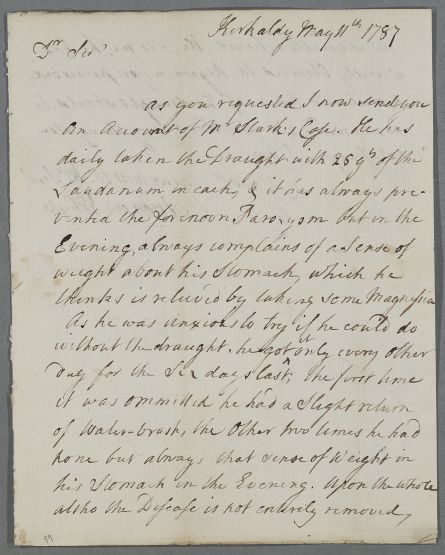 Kirkaldy May 11th 1787
Dr Sir
as you requested I now send you
an Account of Mr Stark's Case. He has
daily taken the Draught with 25 gts of the
Laudanum in each, & it has always pre-
vented the forenoon Paroxysm but in the
Evening, always complains of a Sense of
weight about his Stomach, which he
thinks is relieved by taking some Magnesia
As he was anxious to try if he could do
without the draught, he got it only every other
Day for the Six days last, the first time
it was ommitted he had a Slight return
of Water-brash, the Other two times he had
none but always that sense of Weight in
his Stomach in the Evening. Upon the whole
altho the Disease is not entirely removed,